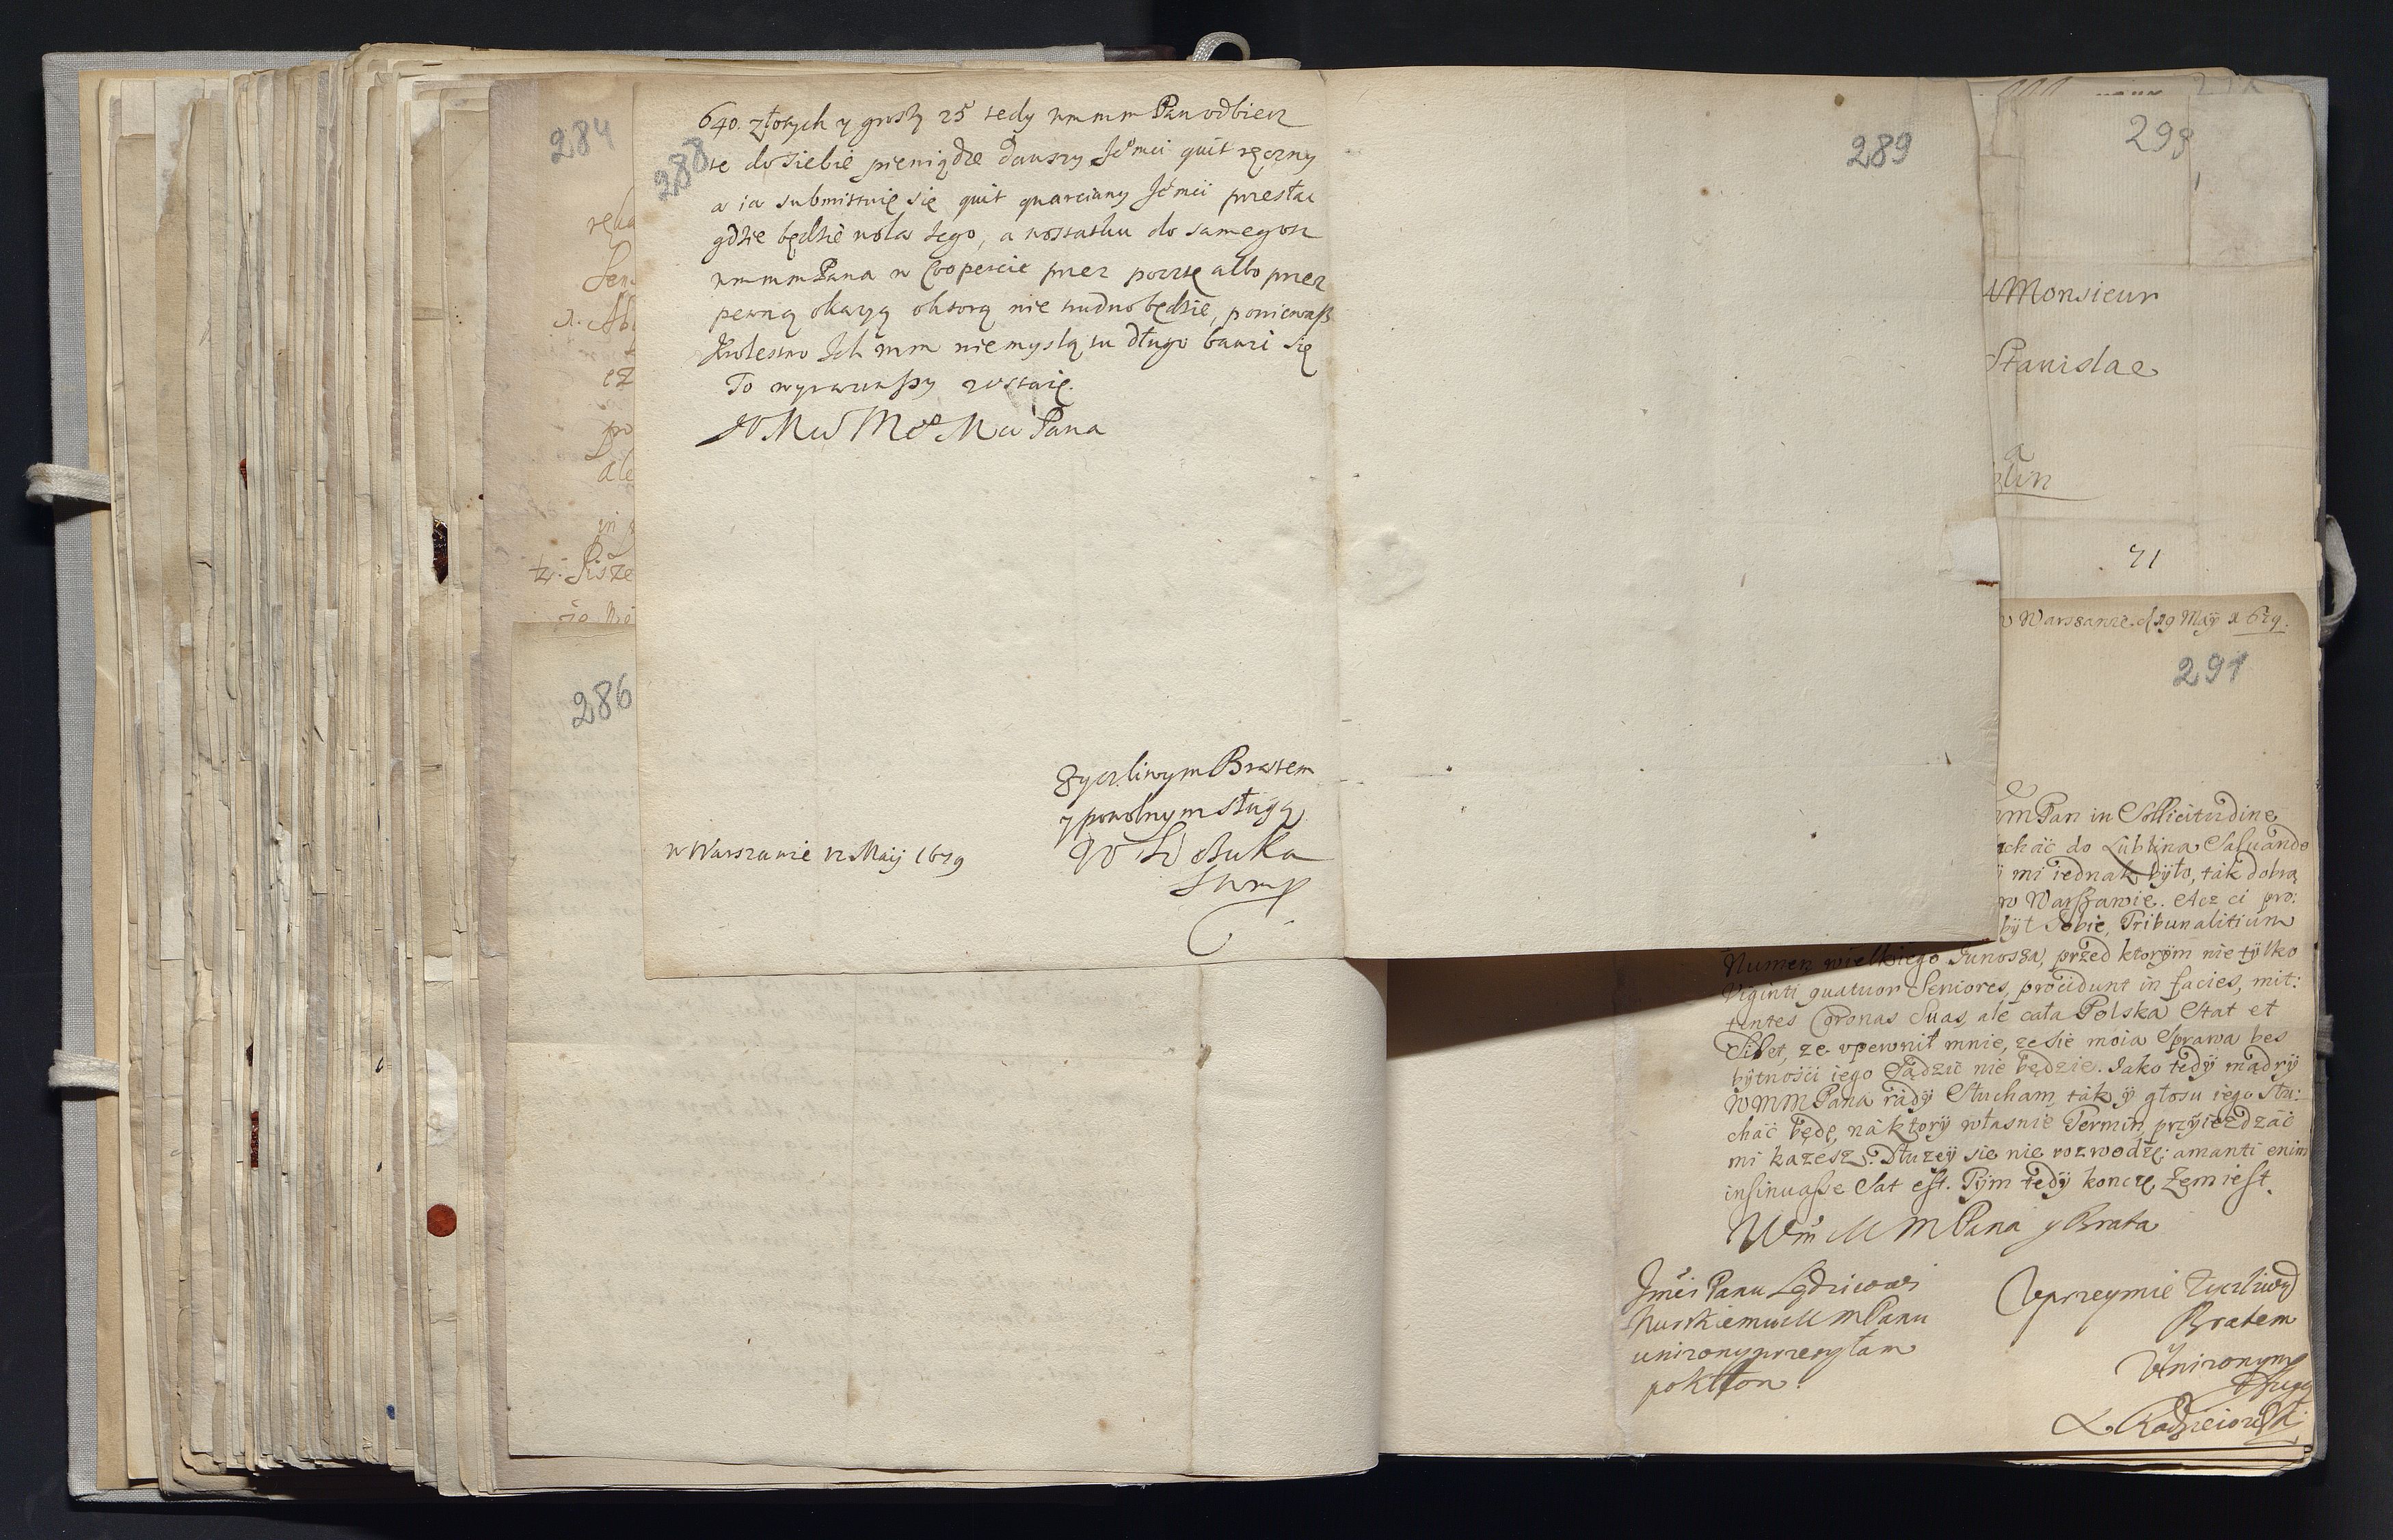 284
ręka
Sen
ez
pro
ale
in
Pisze
286
288
640. złotych y groszy 25 tedy wmmm Pan odbierz
te do siebie pieniądze dawszy Jemci quit ręczny
a ia submittuię się quit quarciany Jemci przesłac
gdzie będzie wola Jego, a wostatku do samego
wmmm Pana w Copercie przez posztę albo przez
pewną okazyą oktorą nie trudno będzie, poniewasz
Krolestwo Ich mm niemyslą tu długo bawic się
To wyraziwszy zostaię.
W Mci Mo Mci Pana
Zyczliwym Bratem
y powolnym sługą
w Warszawie 12 Maij 1679
289
298
Monsieur
Stanislae
a
lin
71
w Warszawie. d 29 Maÿ 1679.
291
Pan in Sollicitudine
chać do Lublina Saluando
mi iednak było, ták dobrą
w Warszawie. Acz ci pro:
był Sobie, Tribunalitium
Numen wielkiego Junosza, przed ktorÿm nie tÿlko
Viginti quatuor Seniores, procidunt in facies, mit:
tentes Coronas Suas, ale cała Polska Stat et
Silet, ze vpewnił mnie, ze sie moia Sprawa bes
bÿtnośći iego Sądzić nie będzie. Jako tedÿ mądrÿ
WMM Pana rádÿ Słucham, ták ÿ głosu iego Słu:
cháć będę, ná ktorÿ własnie Termin przÿiezdzáć
mi kazesz. Dłuzeÿ sie nie rozwodzę: amanti enim
insinuasse Sat est. Tÿm tedÿ koncze, Zem iest
Wm M M Pana y Brata
Jmci Panu Sędziowi
Nurskiemu M M Panu
unizony przesyłam
pokłon.
Vprzeymie Zyczliwym
Bratem
Vnizonym
Sługą
Radzieiowski